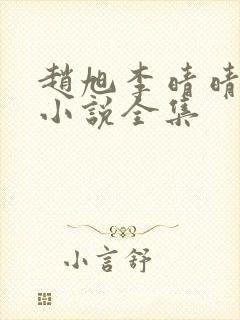 趙旭李晴晴
小說全集
小言舒